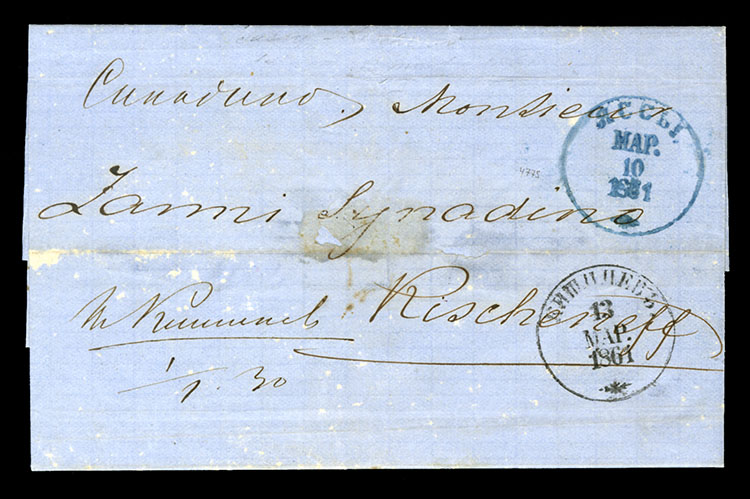 Синадино, Monsieur
ЯССЫ.
МАР.
10
1861
4775
Zanni Synadino
в Кишинев Kischeneff
КИШИНЕВЪ
13
МАР.
1861
1/1.30